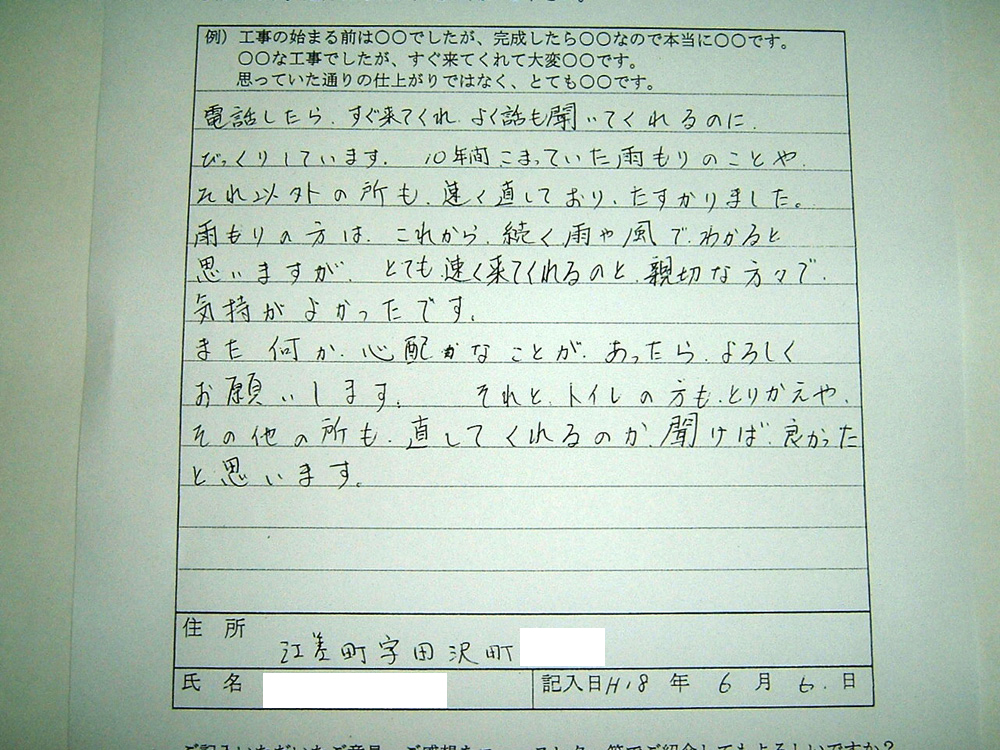 例）工事の始まる前は〇〇でしたが、完成したら〇〇なので本当に〇〇です。
〇〇な工事でしたが、すぐ来てくれて大変〇〇です。
思っていた通りの仕上がりではなく、とても〇〇です。
電話したら、すぐ来てくれ、よく話も聞いてくれるのに、
びっくりしています。 10年間こまっていた雨もりのことや、
それ以外の所も、速く直しており、たすかりました。
雨もりの方は、これから、続く雨や風で、わかると
思いますが、とても、速く来てくれるのと、親切な方々で、
気持がよかったです。
また何か、心配かなことが、あったら、よろしく
お願いします。 それと、トイレの方も、とりかえや、
その他の所も、直してくれるのか、聞けば、良かった
と思います。
住 所
江差町字田沢町
氏 名
記入日H18年 6月 6.日
ご記入いただいたご意見、ご感想を
でご紹介してもよろしいですか？